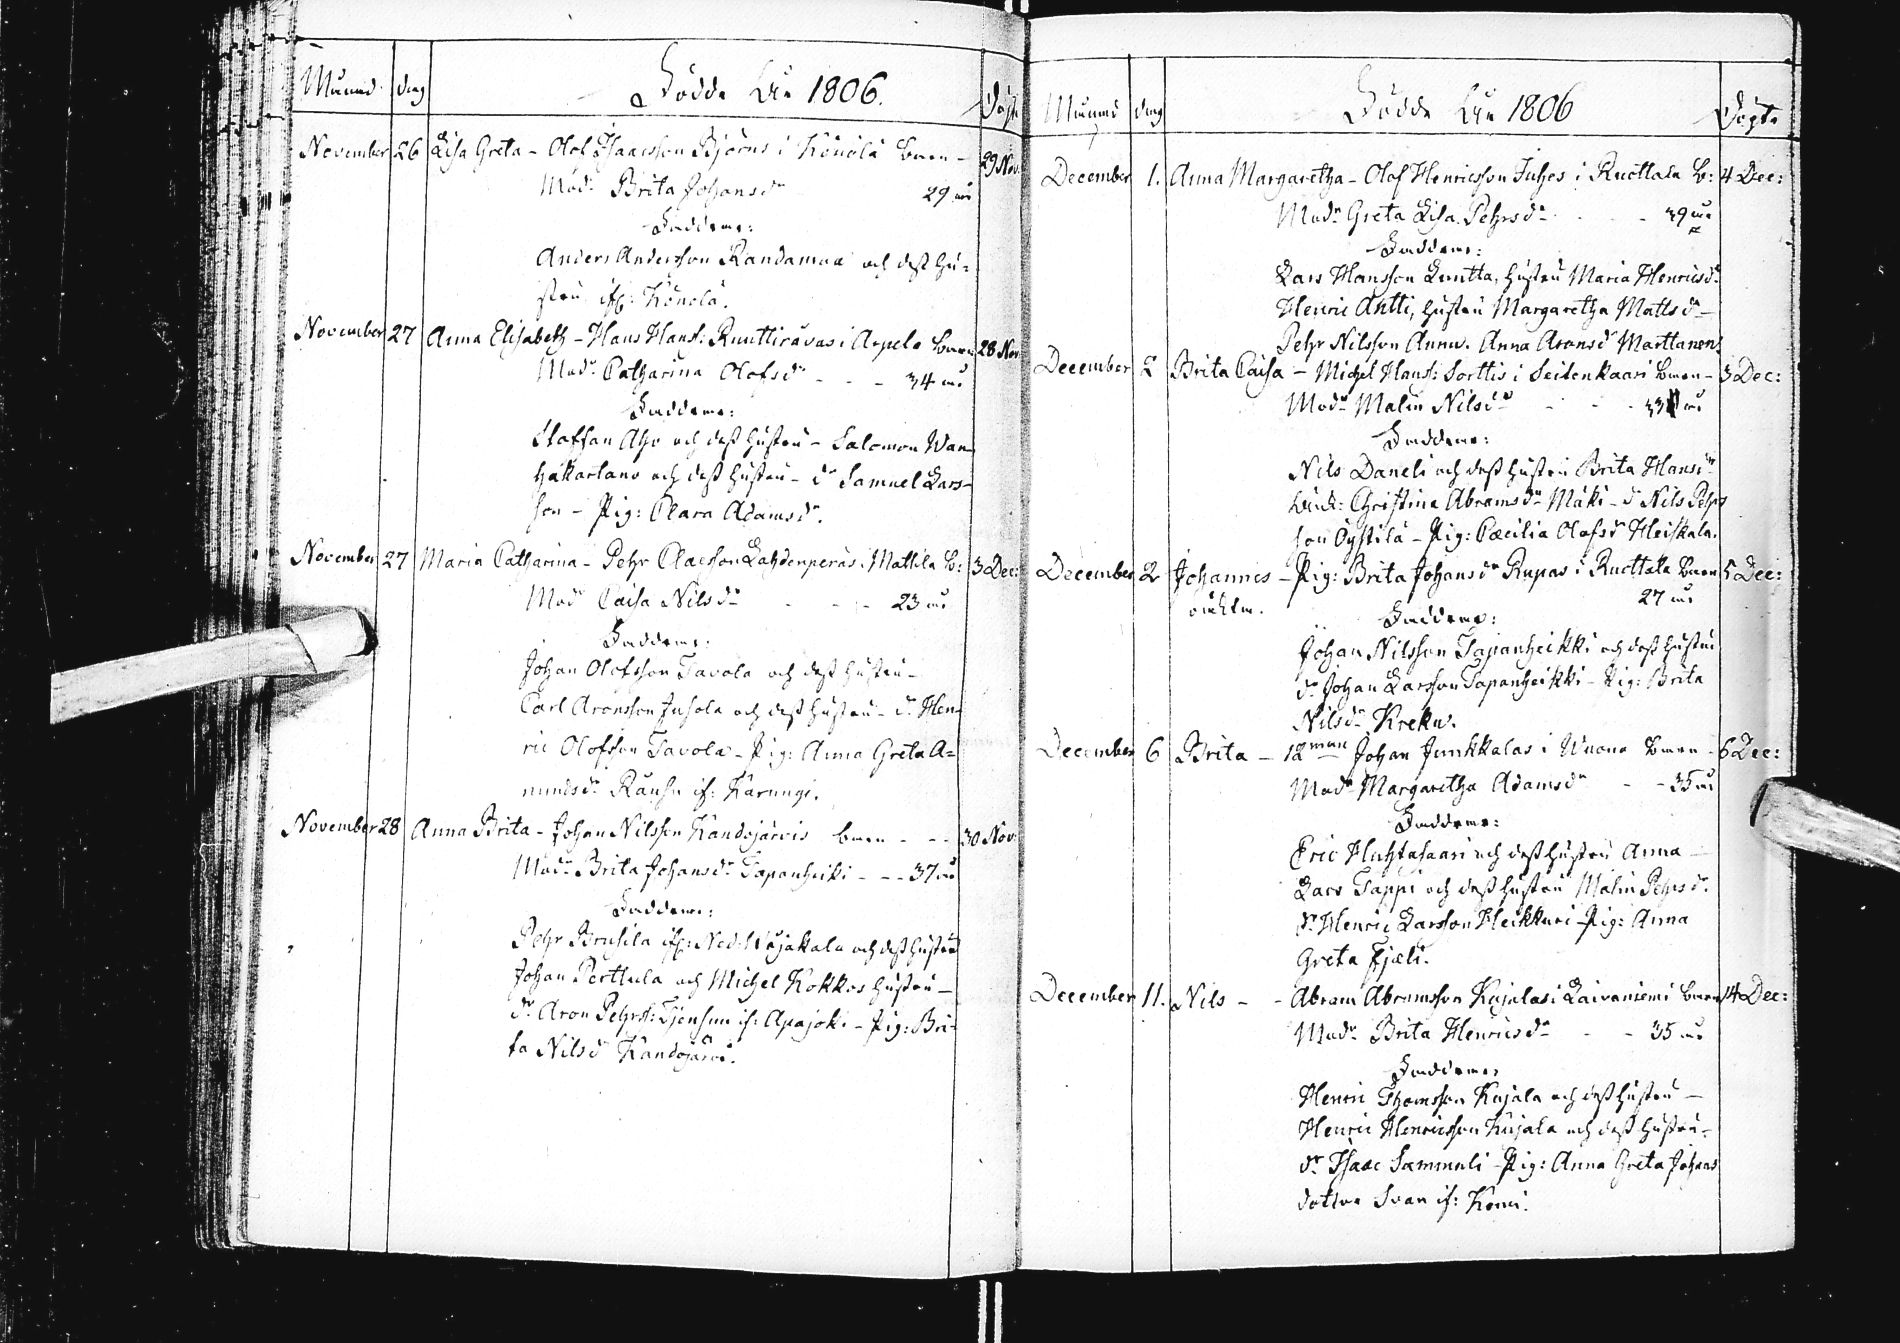 Månad dag Födde åhr 1806. Döpte
November 26 Lisa Greta – Olof Isaacsson Björns i Könölä barn – 29 Nov:
Modr Brita Johansdr 29 år
Faddrar:
Anders Andersson Randamaa och dess hu=
stru ifr: Könölä.
November 27 Anna Elisabeth – Hans Hanss: Runttiravas i Arpela barn 28 Nov
Modr Catharina Olofsdr - - - 34 år
Faddrar:
Staffan Aho och dess hustru – Salomon Wan=
hakartano och dess hustru – dr Samuel Lars=
son – Pig: Clara Adamsdr.
November 27 Maria Catharina – Pehr Claesson Lahdenperäs i Mattila b: 3 Dec:
Modr Caisa Nilsdr - - - 23 år
Faddrar:
Johan Olofsson Tavola och dess hustru –
Carl Aronsson Juhola och dess hustru – dr Hen=
ric Olofsson Tavola – Pig: Anna Greta A=
mundsdr Rauhu if: Karungi.
November 28 Anna Brita – Johan Nilsson Kandojärvis barn - - - 30 Nov:
Modr Brita Johansdr Tapanheiki - - - 37 år
Faddrar:
Pehr Bruhila ifr: Ned: Wojakala och dess hustru
Johan Perttula och Michel Kokkos hustru –
dr Aron Pehrss: if: Apajoki – Pig: Bri=
ta Nilsdr Kandojärvi.
Månad dag Födde åhr 1806 Döpte
December 1. Anna Margaretha – Olof Henricsson Juhos i Ruottala b: 4 Dec:
Modr Greta Lisa Pehrsdr - - - 39 år
Faddrar:
Lars Hansson hustru Maria Henricsdr
Henric Antti, hustru Margaretha Mattsdr –
Pehr Nilsson Annu. Anna Aronsdr Marttanen.
December 2 Brita Caisa – Michel Hanss: Sorttis i Seitenkaari barn – 3 Dec:
Modr Malin Nilsdr - - - 33 år
Faddrar:
Nils Daneli och dess hustru Brita Hansdr
Christina Abramsdr Mäki – dr Nils Pehrs
son – Pig: Cæcilia Olofsdr Heiskala.
December 2 Johannes – Pig: Brita Johansdr Rupas i Ruottala barn 5 Dec:
oächta. 27 år
Faddrar:
Johan Nilsson Tapanheikki och dess hustru
dr Johan Larsson Tapanheikki – Pig: Brita
Nilsdr Kreku.
December 6 Brita – 12man Johan Junkkalas i Wuono barn – 6 Dec:
Modr Margaretha Adamsdr - - 35 år
Faddrar:
Eric Huhtasaari och dess hustru Anna –
Lars Tappi och dess hustru Malin Pehrsdr.
dr Henric Larsson Heikkuri – Pig: Anna
Greta Fjäli.
December 11. Nils - - Abram Abramsson Kujalas i Laivaniemi barn 14 Dec:
Modr Brita Henricsdr - - - 35 år
Faddrar
Henric Thomsson Kujala och dess hustru –
Henric Henricsson Kujala och dess hustru –
dr Isaac Sammuli – Pig: Anna Greta Johans
dotter Svan if: Kemi.